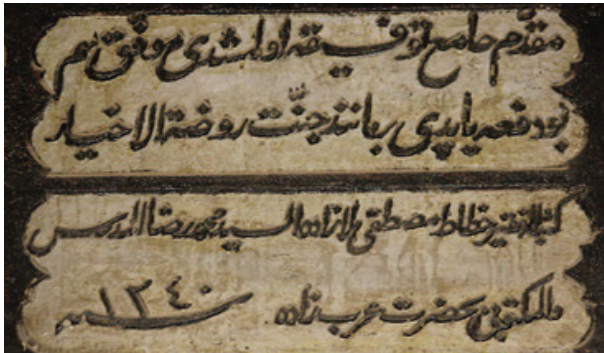 مقدم جامع توفيقه اولمشدى موفق هم
بو دفعه ياپدى مانند جنت روضة الاخيار
كتبه الفقير خطاط مصطفى زاده السيد محمد رضا المدرس
والمكتبى حضرت عرب زاده سنه ١٢٤٠